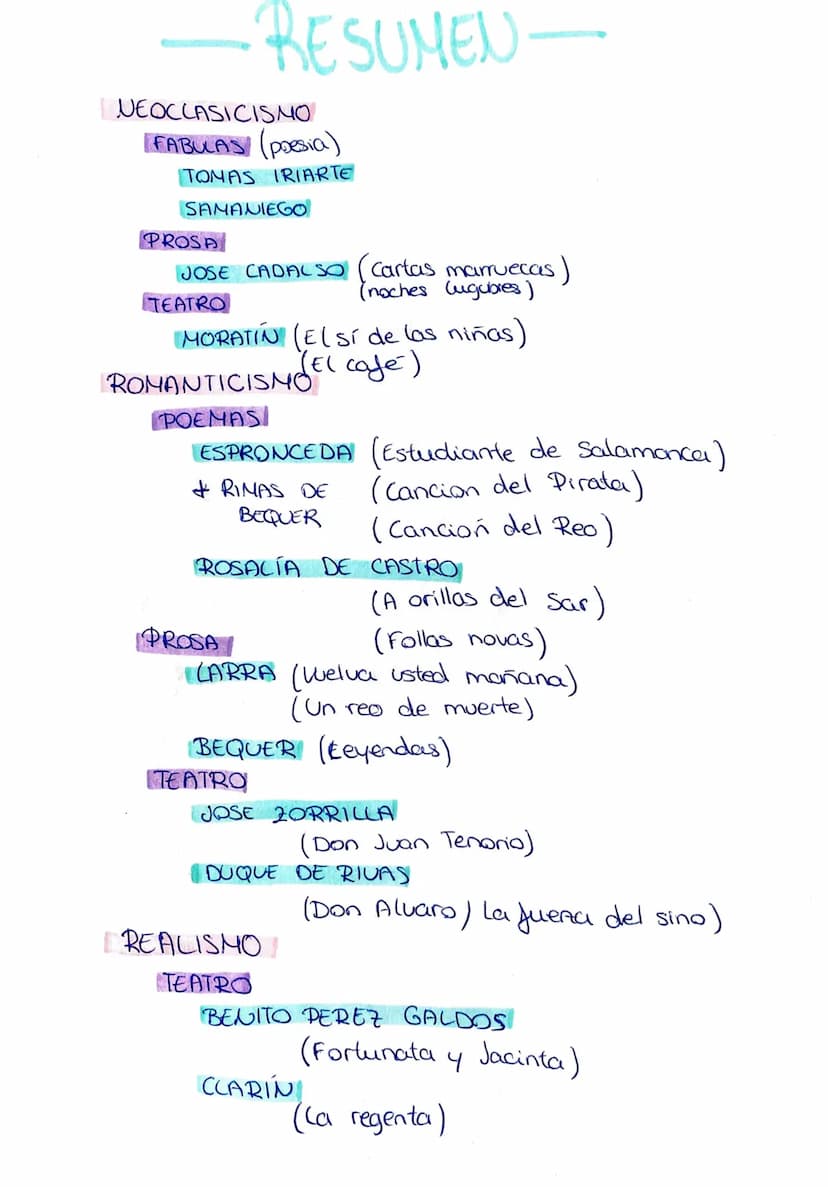 — RESUMEN —
NEOCLASICISMO
FABULAS (poesia)
TOMAS IRIARTE
SAMANIEGO
PROSA
JOSE CADALSO (Cartas marruecas)
(noches lugubres)
TEATRO
MORATÍN (El sí de las niñas)
(El café)
ROMANTICISMO
POEMAS
ESPRONCEDA (Estudiante de Salamanca)
+ RIMAS DE (Cancion del Pirata)
BEQUER (Canción del Reo)
ROSALÍA DE CASTRO
(A orillas del Sar)
PROSA (Follas novas)
LARRA (Vuelva usted mañana)
(Un reo de muerte)
BEQUER (Leyendas)
TEATRO
JOSE ZORRILLA
(Don Juan Tenorio)
DUQUE DE RIVAS
(Don Alvaro / La fuerza del sino)
REALISMO
TEATRO
BENITO PEREZ GALDOS
(Fortunata y Jacinta)
CLARÍN
(La regenta)